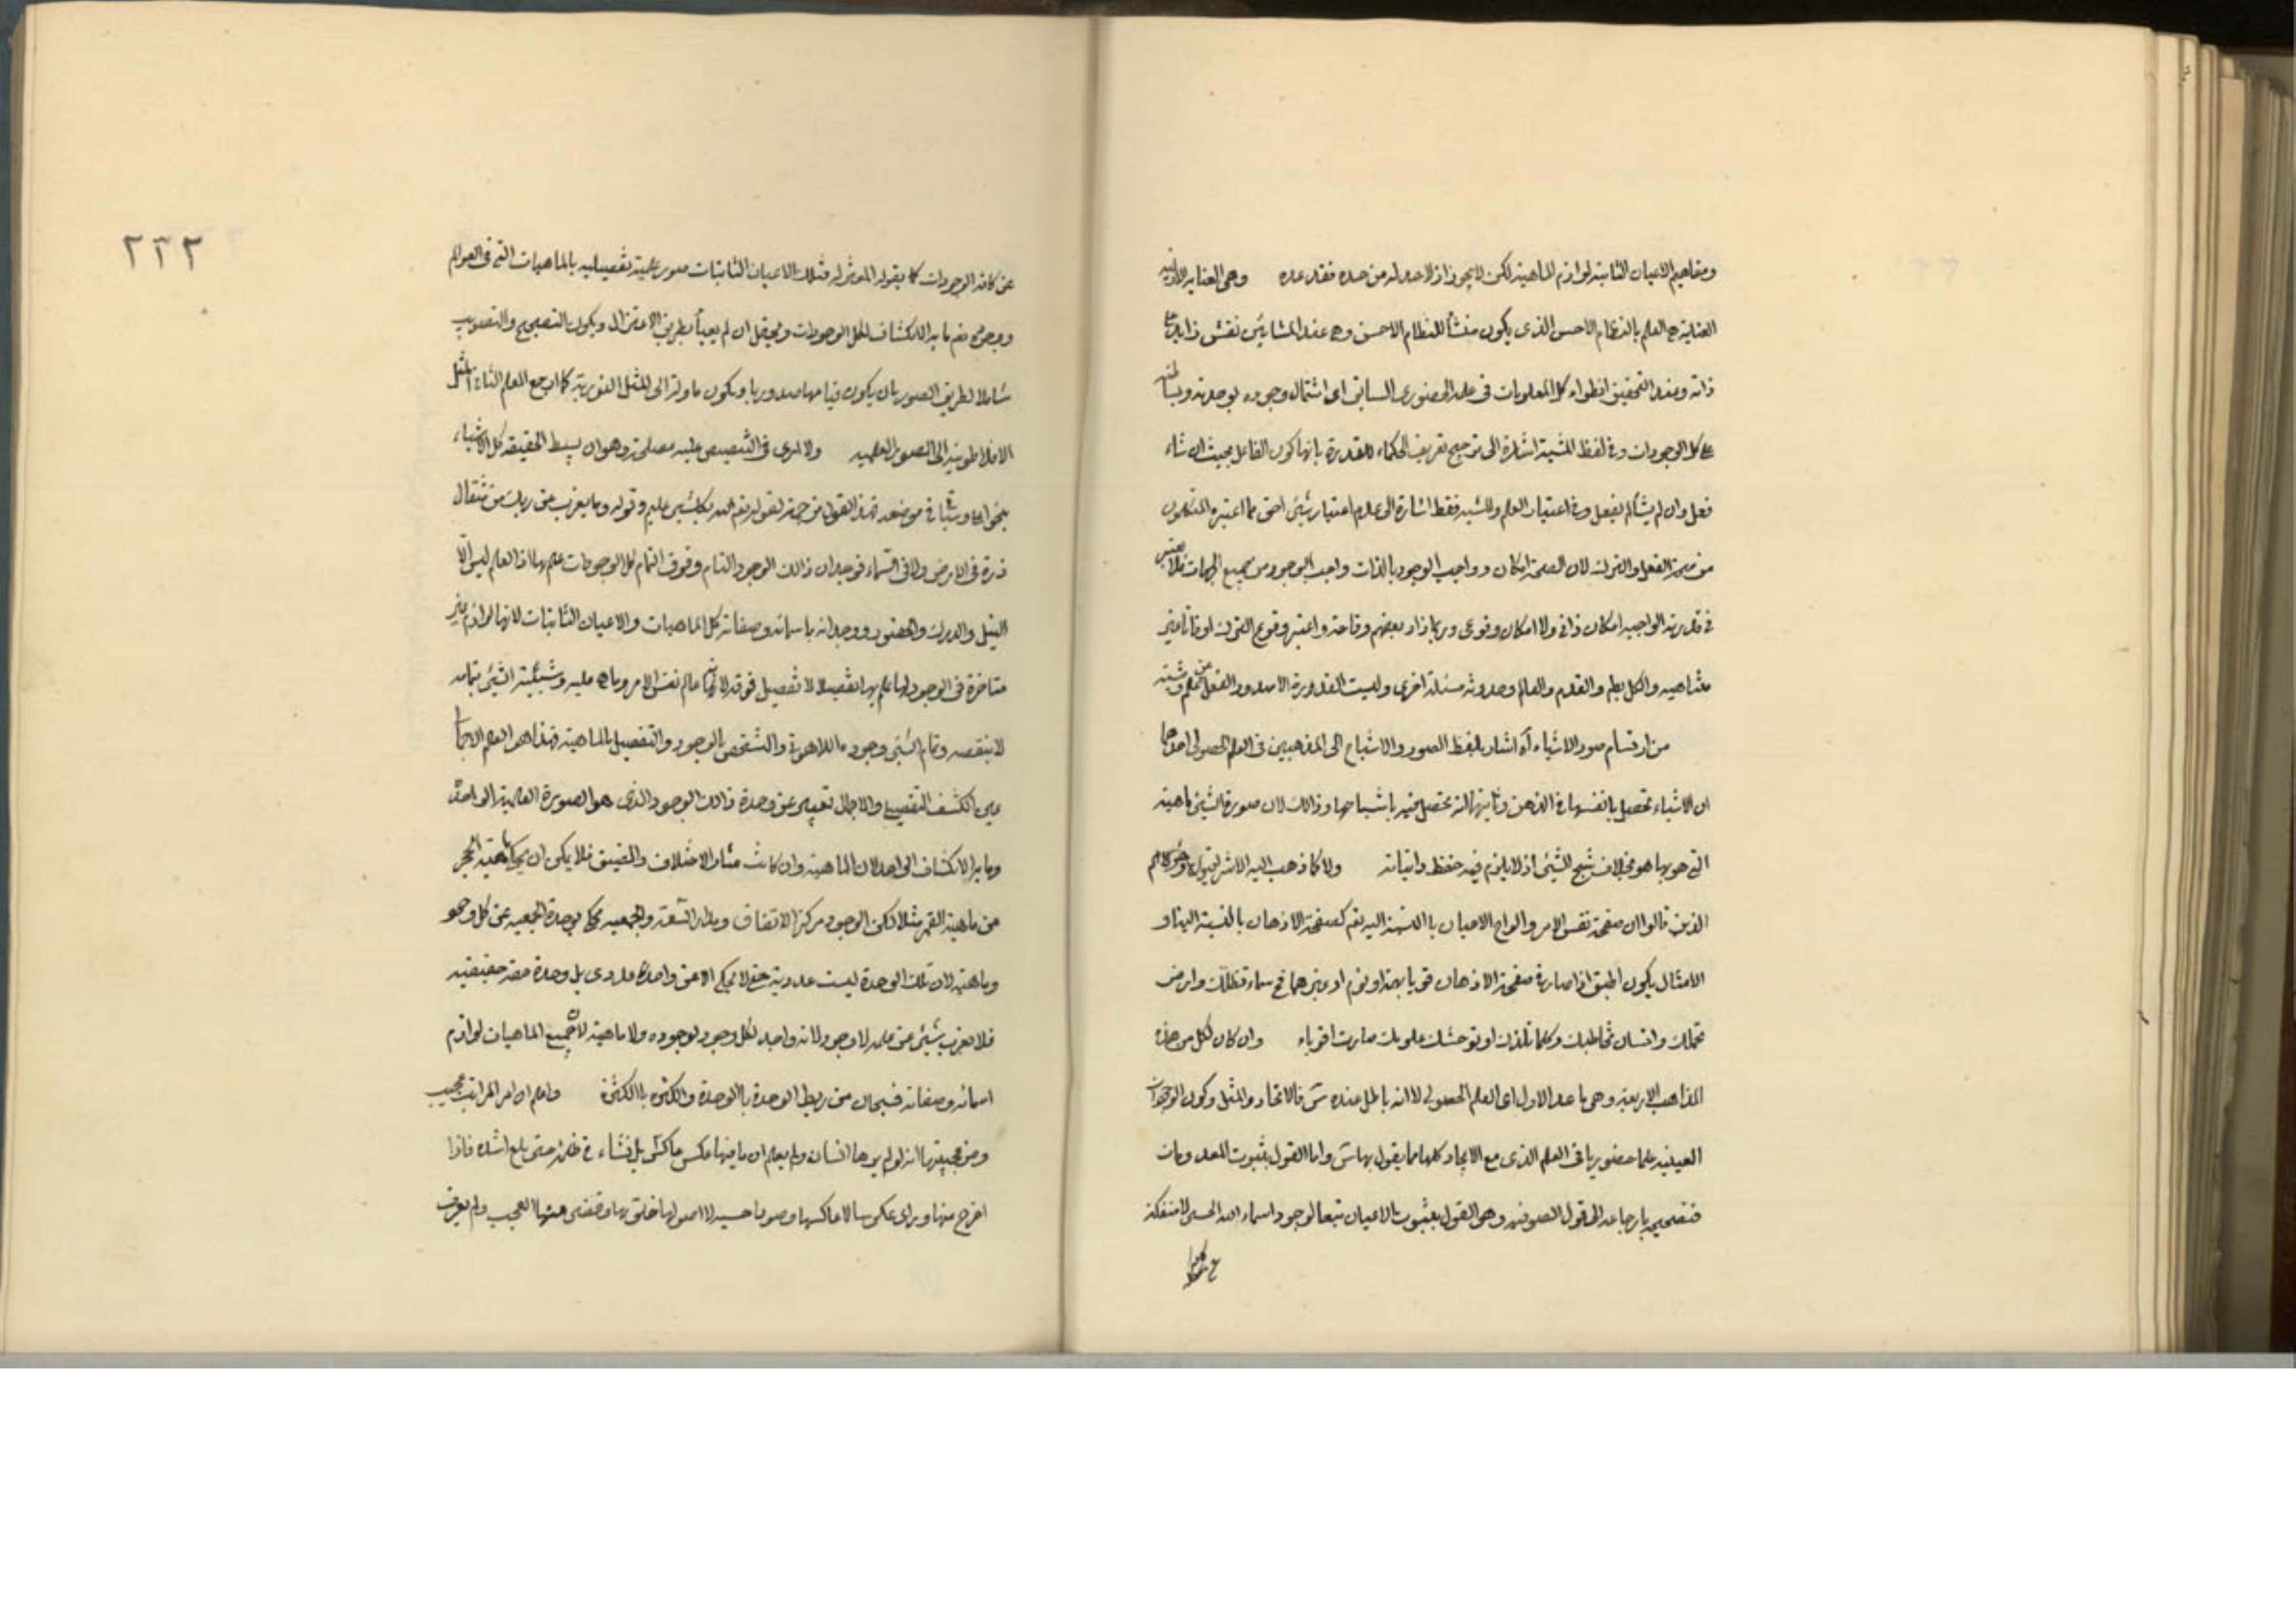 ومفاهيم الاعيان الثابتة لوازم الماهية لكن لا يجوز اذ لا حد له من حده فقد عده وهى العناية
العناية هى العلم بالنظام الاحسن الذى يكون منشأ للنظام الاحسن وهى عند المشائين نقش زايد على
ذاته وعند التحقيق انطواء كل المعلومات فى علمه الحضورى السابق اى اشتمال وجوده بوحدته وبساطته
على كل الوجودات وفى لفظ المشية اشارة الى ترجيح تعريف الحكماء للقدرة بانها كون الفاعل بحيث ان شاء
فعل وان لم يشأ لم يفعل وفى اعتبار العلم والمشية فقط اشارة الى عدم اعتبار شيئ اخر مما اعتبره المتكلمون
من صحة الفعل والترك لان الصحة امكان وواجب الوجود بالذات واجب الوجود من جميع الجهات فلا يعتبر
فى قدرته الواجبة امكان ذاتى ولا امكان وقوعى وربما زاد بعضهم وقاحة واعتبر وقوع الترك اوقاتا غير
متناهية والكل يعلم والقدم والعالم وحدوثه مسئلة اخرى وليست القدرة الا صدور الفعل عن علم ومشية
من ارتسام صور الاشياء آه اشار بلفظ الصور والاشباح الى المذهبين فى العلم الحصولى احدهما
ان الاشياء تحصل بانفسها فى الذهن وثانيهما انه تحصل فيه باشباحها وذلك لان صورة الشيئ ماهيته
التى هو بها هو بخلاف شبح الشيئ اذ لا يلزم فيه حفظ ذاتياته ولا كما ذهب اليه الاشراقيون
الذين قالوا ان صفحة نفس الامر والواح الاعيان بالنسبة اليه تع كصفحة الاذهان بالنسبة الينا و
الامثال يكون اطبق اذا صار ما فى صفحة الاذهان قويا بهذا ونوم او غيرهما فح سماء تظلك وارض
تحملك وانسان تخاطبك وكلما تلذذت او توحشت علومك صارت اقوياء وان كان لكل من هذه
المذاهب الاربعة وهى ما عدا الاول اى العلم الحصولى لا انه باطل عنده س فالاتحاد والمثل وكون الوجودات
العينية علما حضوريا فى العلم الذى مع الايجاد كلها مما يقول بها س واما القول بثبوت المعدومات
فتصحيحه بارجاعه الى قول الصوفية وهو القول بثبوت الاعيان تبعا لوجود اسماء الله الحسنى لا منفكة
٢٣٢
عن كافة الوجودات كما يقوله المعتزلة فتلك الاعيان الثابتات صور علمية تفصيلية بالماهيات التى فى العوالم
ووجوده تع ما به الانكشاف لكل الوجودات ويحتمل ان لم يعبأ بطريق الاعتزال ويكون التصحيح والتصويب
شاملا لطريق الصور بان يكون قيامها صدوريا ويكون ماولة الى المثل النورية كما ارجع المعلم الثانى المثل
الافلاطونية الى الصور العلمية ولا ارى فى التنصيص عليه مصلحة وهو ان بسيط الحقيقة كل الاشياء
بنحو اعلى وشيئا فى موضعه فهذا القول من جهة لقوله تع الله بكل شيئ عليم وقوله وما يعزب عن ربك من مثقال
ذرة فى الارض ولا فى السماء فوجدان ذلك الوجود التام وفوق التمام كل الوجودات علم بها اذ العلم ليس الا
النيل والدرك والحضور ووجدانه باسمائه وصفاته كل الماهيات والاعيان الثابتات لانها لوازم غير
متاخرة فى الوجود لها علم بها تفصيلا لا تفصيل فوقه لانه عالم نفس الامر وما هو عليه وشيئية الشيئ بتمامه
لا بنقصه وتمام الشيئ وجوده اللاهوتى والتشخص بالوجود والتفصيل بالماهية فهذا هو العلم الاجمالى
فى عين الكشف التفصيلى والاجمال تعبير عن وحدة ذلك الوجود الذى هو الصورة العلمية الواحدة
وما به الانكشاف الواحد لان الماهية وان كانت مثار الاختلاف والضيق فلا يمكن ان يحكى ماهية الحجر
عن ماهية القمر مثلا لكن الوجود مركز الاتفاق ومدار السعة والجمعية يحكى بوحدة الجمعية عن كل وجود
وماهية لان تلك الوحدة ليست عددية حتى لا يحكى الا عن واحد عددى بل وحدة حقة حقيقية
فلا يعزب شيئ عن علمه لا وجود لانه واجد لكل وجود بوجوده ولا ماهية لان جميع الماهيات لوازم
اسمائه وصفاته فسبحان من ربط الوحدة بالوحدة والكثرة بالكثرة واعلم ان امر المرائى عجيب
ومن عجيبتها انه لو لم يرها انسان ولم يعلم ان ما فيها عكس ما كس بل نشاء فى خلوة حتى بلغ اشده فاذا
اخرج منها وراى عكوسا لا عاكس لها وصورا حسية لا اصول لها خلق بها وقضى منها العجب ولم يعرف